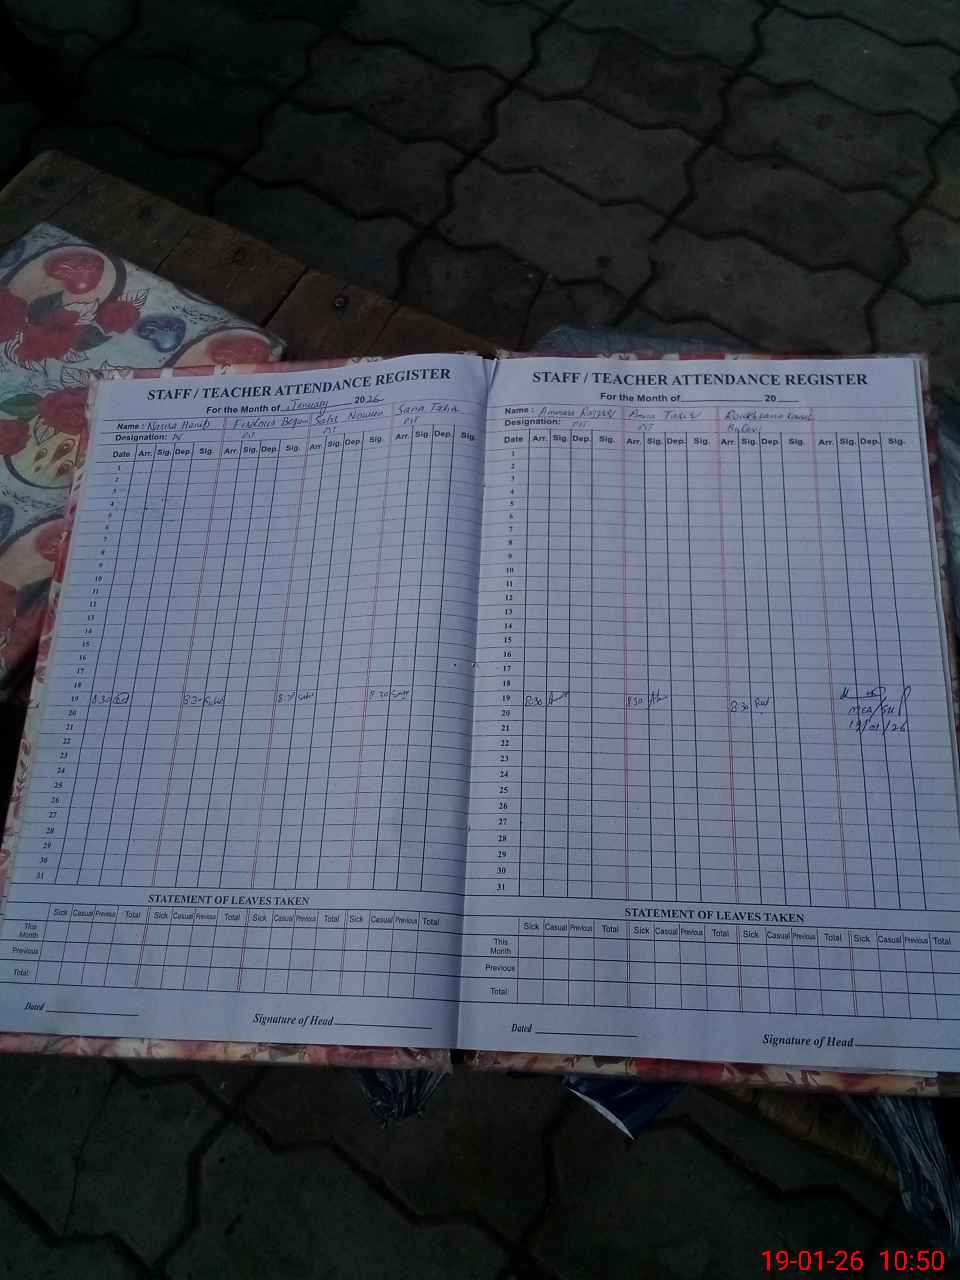 STAFF / TEACHER ATTENDANCE REGISTER
For the Month of January 2026
Name : Firdous Begum Safi Sana
Designation: PST PST PST
Date Arr. Sig. Dep. Sig. Arr. Sig. Dep. Sig. Arr. Sig. Dep. Sig. Arr. Sig. Dep. Sig.
1
2
3
4
5
6
7
8
9
10
11
12
13
14
15
16
17
18
19 8:30 8:30 8:30 8:30
20
21
22
23
24
25
26
27
28
29
30
31
STATEMENT OF LEAVES TAKEN
Sick Casual Previous Total Sick Casual Previous Total Sick Casual Previous Total Sick Casual Previous Total
This Month
Previous
Total:
Dated
Signature of Head
STAFF / TEACHER ATTENDANCE REGISTER
For the Month of 20
Name : Amna
Designation: PST PST
Date Arr. Sig. Dep. Sig. Arr. Sig. Dep. Sig. Arr. Sig. Dep. Sig. Arr. Sig. Dep. Sig.
1
2
3
4
5
6
7
8
9
10
11
12
13
14
15
16
17
18
19 8:30 8:30 8:30
20
19/01/26
21
22
23
24
25
26
27
28
29
30
31
STATEMENT OF LEAVES TAKEN
Sick Casual Previous Total Sick Casual Previous Total Sick Casual Previous Total Sick Casual Previous Total
This Month
Previous
Total:
Dated
Signature of Head
19-01-26 10:50